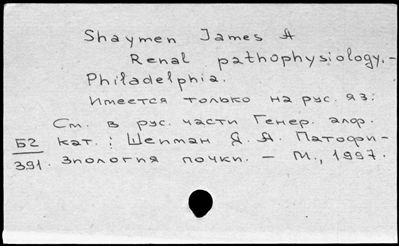 Shaymen James A
Renal pathophysiology. -
Philadelphia.
Имеется только на рус. яз.:
См. в рус. части Генер. алф.
Б2 кат.: Шейман Д. А. Патофи-
391. зиология почки. - М., 1997.